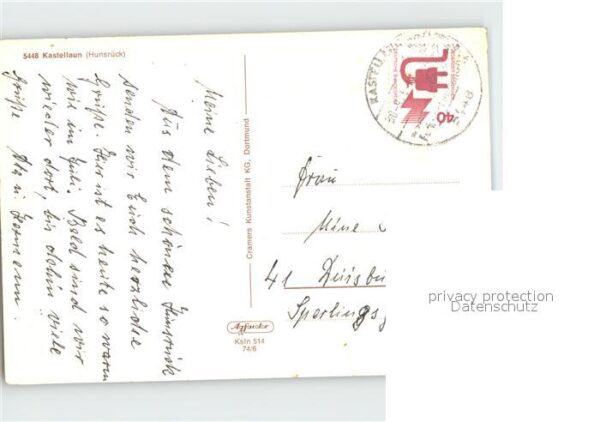 5448 Kastellaun (Hunsrück)
Meine Lieben!
Aus dem schönen Hunsrück
senden wir Euch herzliche
Grüße. Hier ist es heute so warm
wie im Juli. Bald sind wir
wieder dort, bis dahin viele
Grüße
Cramers Kunstanstalt KG, Dortmund
Ksln 514
74/6
KASTELLAUN
40
Frau
Mine
41 Duisbu
Sperlings
privacy protection
Datenschutz